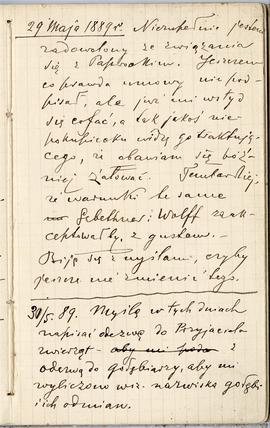 29 Maja 1889 r. Niezupełnie jestem
zadowolony ze związania
się z Paprockim. Jeszczem
co prawda umowy nie pod-
pisał, ale już mi wstyd
się cofać, a tak jakoś nie-
pokupiecku widzę go traktują-
cego, iż obawiam się póź-
niej żałować. Tembardziej,
że warunki te same
Gebethner i Wolff zaak-
ceptowałby z gustem.
Biję się z myślami, czyby
jeszcze nie zmienić tego.
30/5. 89. Myślę w tych dniach
napisać odezwę do Przyjaciela
zwierząt - aby mi poda z
odezwą do gołębiarzy, aby mi
wyliczono wsz. nazwiska gołębi
i ich odmian.